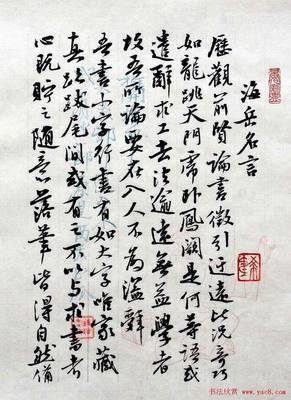 海岳名言
歷觀前賢論書徵引迂遠比況奇巧
如龍跳天門虎卧鳳闕是何等語或
遣辭求工去法逾遠無益學者
故吾所論要在入人不為溢辭
吾書小字行書有如大字唯家藏
真跡跋尾間或有之不以与求書者
心既貯之隨意落筆皆得自然備
书法欣赏 www.yac8.com